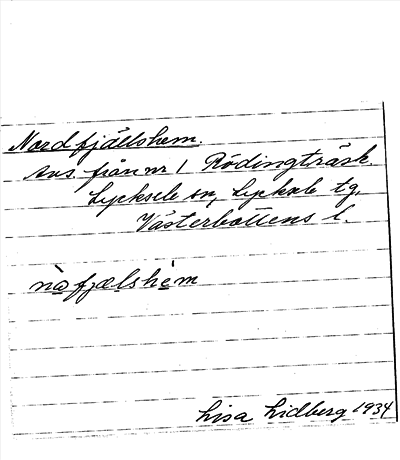 Nordfjällshem.
Avs. från nr 1 Rödingträsk.
Lycksele sn, Lycksele tg
Västerbottens l.
nàfjælshèm
Lisa Lidberg 1934